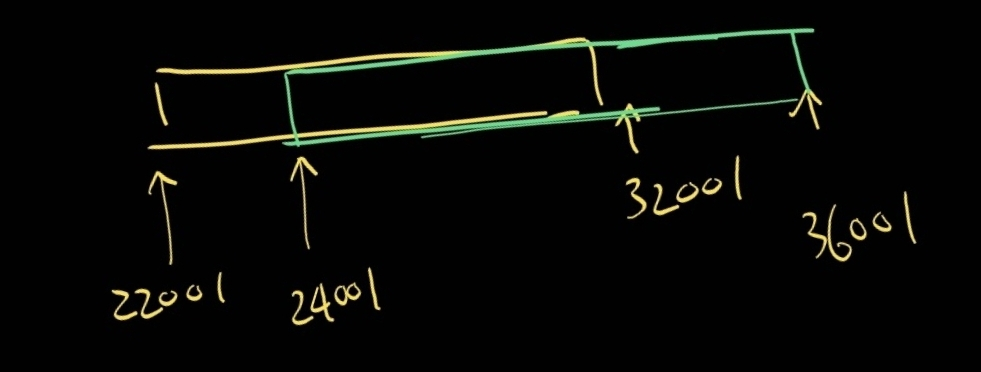 22001
24001
32001
36001